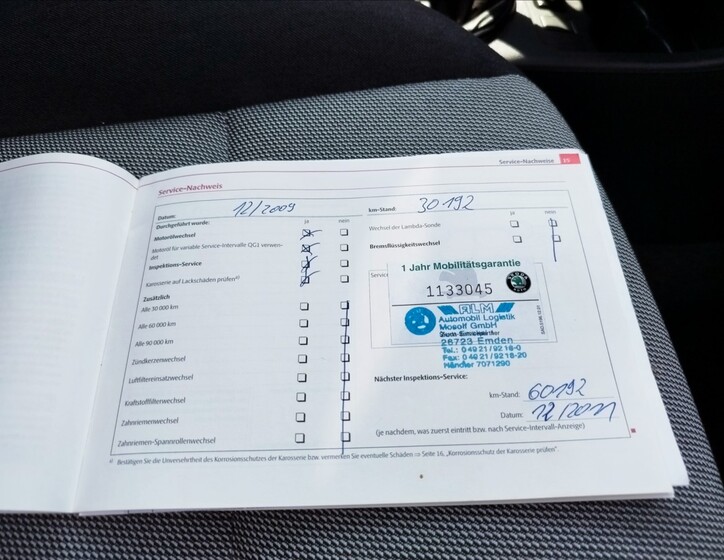 Service-Nachweise 35
Service-Nachweis
Datum: 12/2009
km-Stand: 30192
Durchgeführt wurde: ja nein
ja nein
Motorölwechsel
Wechsel der Lambda-Sonde
Motoröl für variable Service-Intervalle QG1 verwen-
det
Bremsflüssigkeitswechsel
Inspektions-Service
Karosserie auf Lackschäden prüfen a)
Zusätzlich
Alle 30 000 km
Alle 60 000 km
Alle 90 000 km
Zündkerzenwechsel
Luftfiltereinsatzwechsel
Kraftstofffilterwechsel
Zahnriemenwechsel
Zahnriemen-Spannrollenwechsel
Service
1 Jahr Mobilitätsgarantie
1133045
ALM
Automobil Logistik
Mosolf GmbH
26723 Emden
Tel.: 0 49 21 / 92 18-0
Fax: 0 49 21 / 92 18-20
Händler 7071290
Nächster Inspektions-Service:
km-Stand: 60192
Datum: 12/2011
(je nachdem, was zuerst eintritt bzw. nach Service-Intervall-Anzeige)
a) Bestätigen Sie die Unversehrtheit des Korrosionsschutzes der Karosserie bzw. vermerken Sie eventuelle Schäden ⇒ Seite 16, „Korrosionsschutz der Karosserie prüfen".